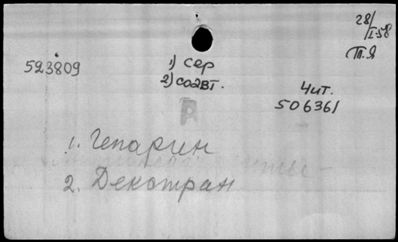 28/I-58
т.я
523809
1) сер
2) соавт.
Чит.
506361
1. Гепарин
2. Декстран